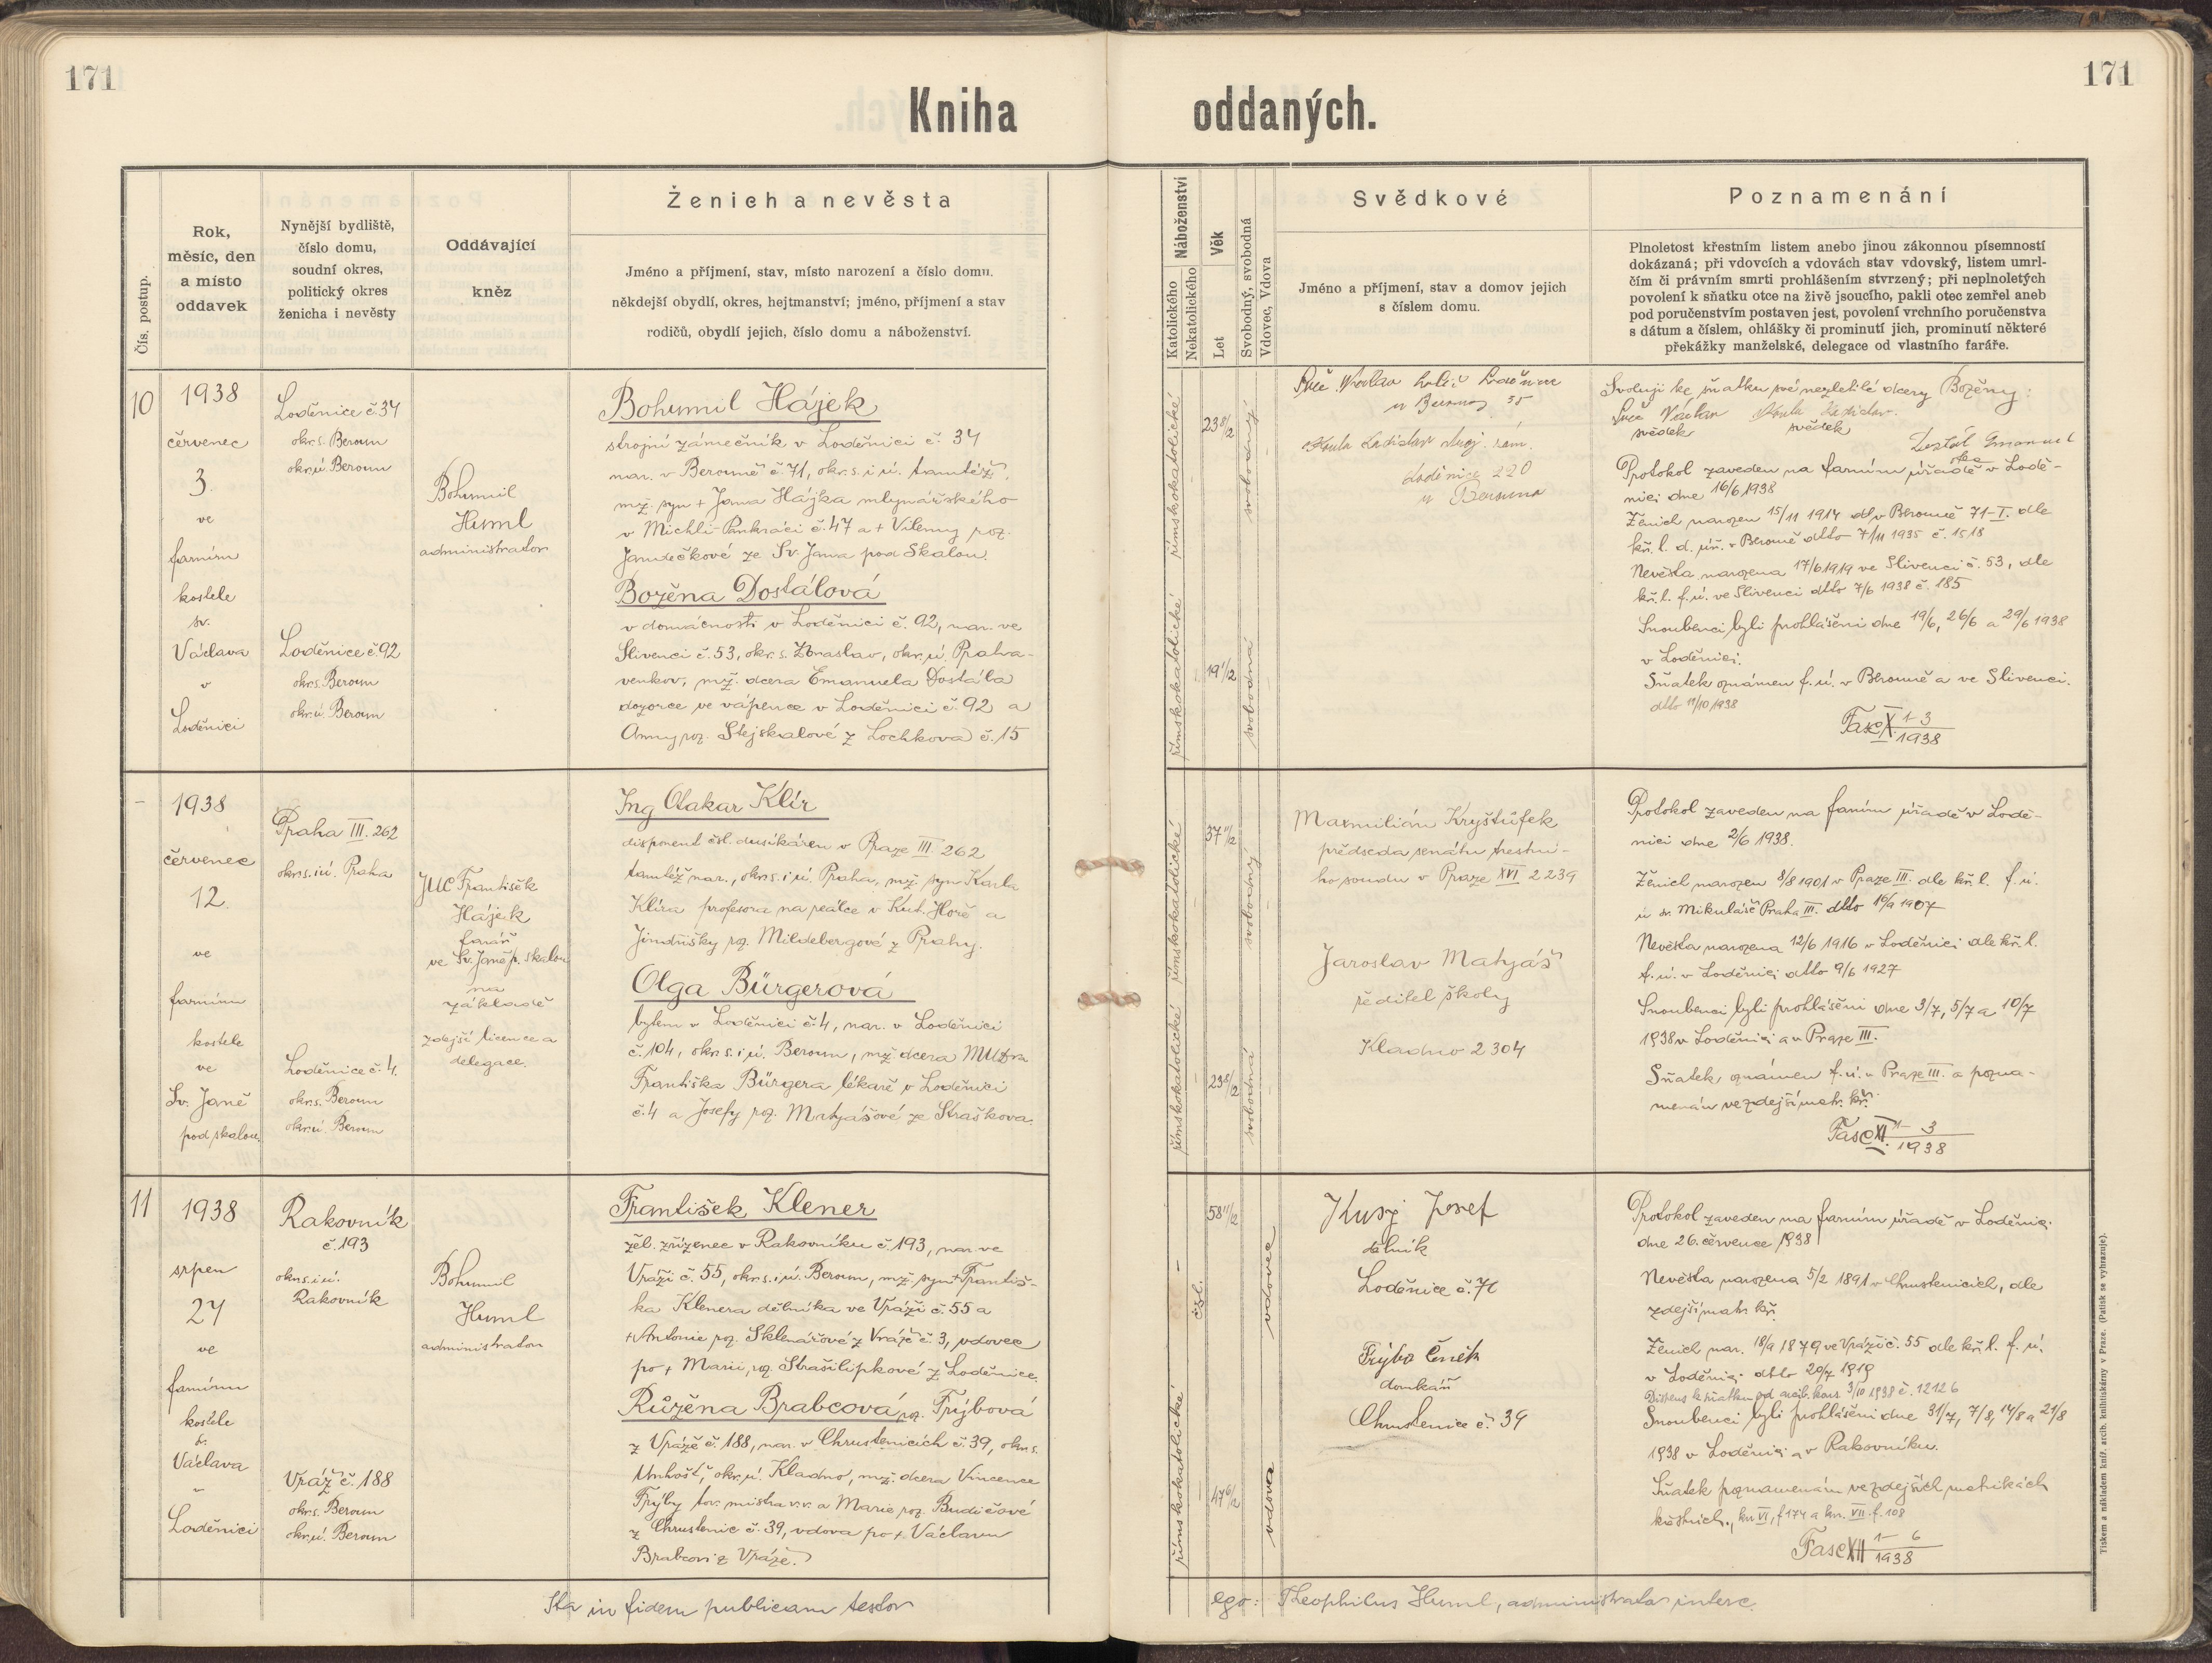 171
171
Kniha
oddaných.
Čís. postup.
Rok,
měsíc, den
a místo
oddavek
Nynější bydliště,
číslo domu,
soudní okres,
politický okres
ženicha i nevěsty
Oddávající
kněz
Ženich a nevěsta
Jméno a příjmení, stav, místo narození a číslo domu,
někdejší obydlí, okres, hejtmanství; jméno, příjmení a stav
rodičů, obydlí jejich, číslo domu a náboženství.
Náboženství
Katolického
Nekatolického
Věk
Let
Svobodný, svobodná
Vdovec, Vdova
Svědkové
Jméno a příjmení, stav a domov jejich
s číslem domu.
Poznamenání
Plnoletost křestním listem anebo jinou zákonnou písemností
dokázaná; při vdovcích a vdovách stav vdovský, listem umrl-
čím či právním smrti prohlášením stvrzený; při neplnoletých
povolení k sňatku otce na živě jsoucího, pakli otec zemřel aneb
pod poručenstvím postaven jest, povolení vrchního poručenstva
s dátum a číslem, ohlášky či prominutí jich, prominutí některé
překážky manželské, delegace od vlastního faráře.
10
1938
červenec
3.
ve
farním
kostele
sv.
Václava
v
Loděnici
Loděnice č 34
okr. s. Beroun
okr. ú. Beroun
Loděnice č 92
okr. s. Beroun
okr. ú. Beroun
Bohumil
Huml
administrator
Bohumil Hájek
strojní zámečník v Loděnici č. 34
nar. v Berouně č. 71, okr. s. i ú. tamtéž,
mž. syn + Jana Hájka mlynářského
v Michli-Pankráci č. 47 a + Vilemy roz.
Jandečkové ze Sv. Jana pod Skalou.
Božena Dostálová
v domácnosti v Loděnici č. 92, nar. ve
Slivenci č. 53, okr. s. Zbraslav, okr. ú. Praha-
venkov, mž. dcera Emanuela Dostála
dozorce ve vápence v Loděnici č. 92 a
Anny roz. Stejskalové z Lochkova č. 15
římskokatolické
římskokatolické
23 8/12
19 1/12
svobodný
svobodná
u Berouna 35
Koula Ladislav stroj. zám.
Loděnice 220
u Berouna
Svoluji ke sňatku své nezletilé dcery Boženy:
svědek
Koula Ladislav
svědek
Dostál Emanuel
otec
Protokol zaveden na farním úřadě v Lodě-
nici dne 16/6 1938
Ženich narozen 15/11 1914 v Berouně 71-I. dle
kř. l. d. úř. v Berouně dtto 7/11 1935 č. 1518
Nevěsta narozena 17/6 1919 ve Slivenci č. 53, dle
kř. l. f. ú. ve Slivenci dtto 7/6 1938 č. 185
Snoubenci byli prohlášeni dne 19/6, 26/6 a 29/6 1938
v Loděnici.
Sňatek oznámen f. ú. v Berouně a ve Slivenci.
dtto 11/10 1938
Fasc X. 1-3
1938
-
1938
červenec
12.
ve
farním
kostele
ve
Sv. Janě
pod skalou.
Praha III. 262
okr. s. i ú. Praha
Loděnice č. 4.
okr. s. Beroun
okr. ú. Beroun
JUC František
Hájek
farář
ve Sv. Janě p. skalou
na
základě
zdejší licence a
delegace.
Ing Otakar Klír
disponent čsl. dusíkáren v Praze III. 262
tamtéž nar., okr. s. i ú. Praha, mž. syn Karla
Klíra profesora na reálce v Kut. Hoře a
Jindřišky roz. Mildebergové z Prahy.
Olga Bürgerová
bytem v Loděnici č. 4, nar. v Loděnici
č. 104, okr. s. i ú. Beroun, mž. dcera MUDra
Františka Bürgera lékaře v Loděnici
č. 4 a Josefy roz. Matyášové ze Straškova.
římskokatolické
římskokatolické
37 11/12
23 8/12
svobodný
svobodná
Maxmilián Kryštůfek
předseda senátu trestní-
ho soudu v Praze XVI 2239
Jaroslav Matyáš
ředitel školy
Kladno 2304
Protokol zaveden na farním úřadě v Lodě-
nici dne 2/6 1938.
Ženich narozen 8/8 1901 v Praze III. dle kř. l. f. ú.
u sv. Mikuláše Praha III. dtto 19/9 1907
Nevěsta narozena 12/6 1916 v Loděnici dle kř. l.
f. ú. v Loděnici dtto 9/6 1927
Snoubenci byli prohlášeni dne 3/7, 5/7 a 10/7
1938 v Loděnici a v Praze III.
Sňatek oznámen f. ú. v Praze III. a pozna-
menán ve zdejší matr. kř.
Fasc XI. 1-3
1938
11
1938
srpen
27
ve
farním
kostele
sv.
Václava
v
Loděnici
Rakovník
č. 193
okr. s. i ú.
Rakovník
Vráž č. 188
okr. s. Beroun
okr. ú. Beroun
Bohumil
Huml
administrator
František Klener
žel. zřízenec v Rakovníku č. 193, nar. ve
Vráži č. 55, okr. s. i ú. Beroun, mž. syn + Františ-
ka Klenera dělníka ve Vráži č. 55 a
+ Antonie roz. Sklenářové z Vráže č. 3, vdovec
po + Marii, roz. Strašilipkové z Loděnice.
Růžena Brabcová, roz. Frýbová
z Vráže č. 188, nar. v Chrustenicích č. 39, okr. s.
Unhošť, okr. ú. Kladno, mž. dcera Vincence
Frýby tov. mistra v. v. a Marie roz. Budičové
z Chrustenic č. 39, vdova po + Václavu
Brabcovi z Vráže.
-
čsl.
římskokatolické
58 11/12
47 6/12
vdovec
vdova
Kusý Josef
dělník
Loděnice č. 71
Frýba Čeněk
domkář
Chrustenice č. 39
Protokol zaveden na farním úřadě v Loděnici
dne 26. července 1938
Nevěsta narozena 5/2 1891 v Chrustenicích, dle
zdejší matr. kř.
Ženich nar. 18/9 1879 ve Vráži č. 55 dle kř. l. f. ú.
v Loděnici dtto 20/7 1919
Dispens k sňatku od arcib. kons. 3/10 1938 č. 12126
Snoubenci byli prohlášeni dne 31/7, 7/8, 14/8 a 21/8
1938 v Loděnici a v Rakovníku.
Sňatek poznamenán ve zdejších matrikách
křestních, kn. VI, f 174 a kn. VII. f. 108
Fasc XII 1-6
1938
Ita in fidem publicam testor
ego: Theophilus Huml, administrator interc.
Tiskem a nákladem kníž. arcib. knihtiskárny v Praze. (Patisk se vyhrazuje).